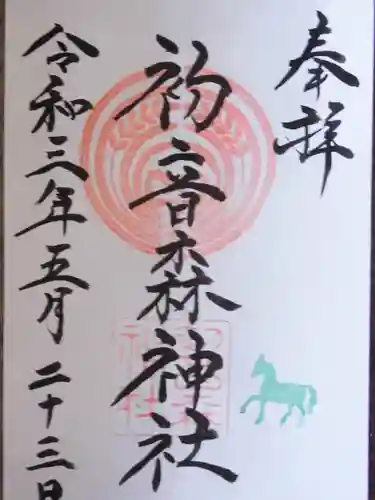 奉拝
初音森神社
令和三年五月二十三日